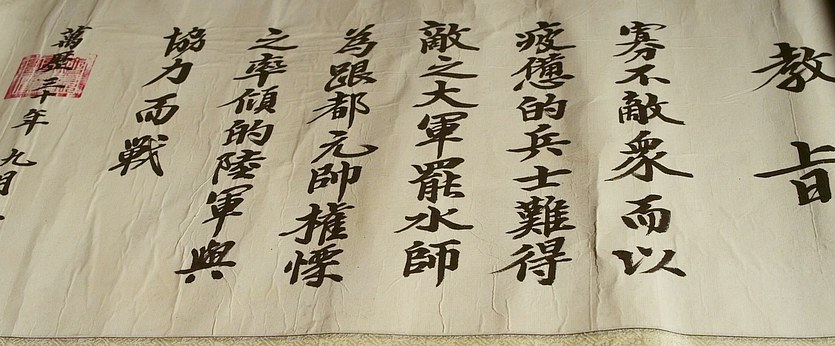 教旨
寡不敵衆而以
疲憊的兵士難得
敵之大軍罷水師
為跟都元帥權慄
之率傾的陸軍與
協力而戰
萬曆三十年九月